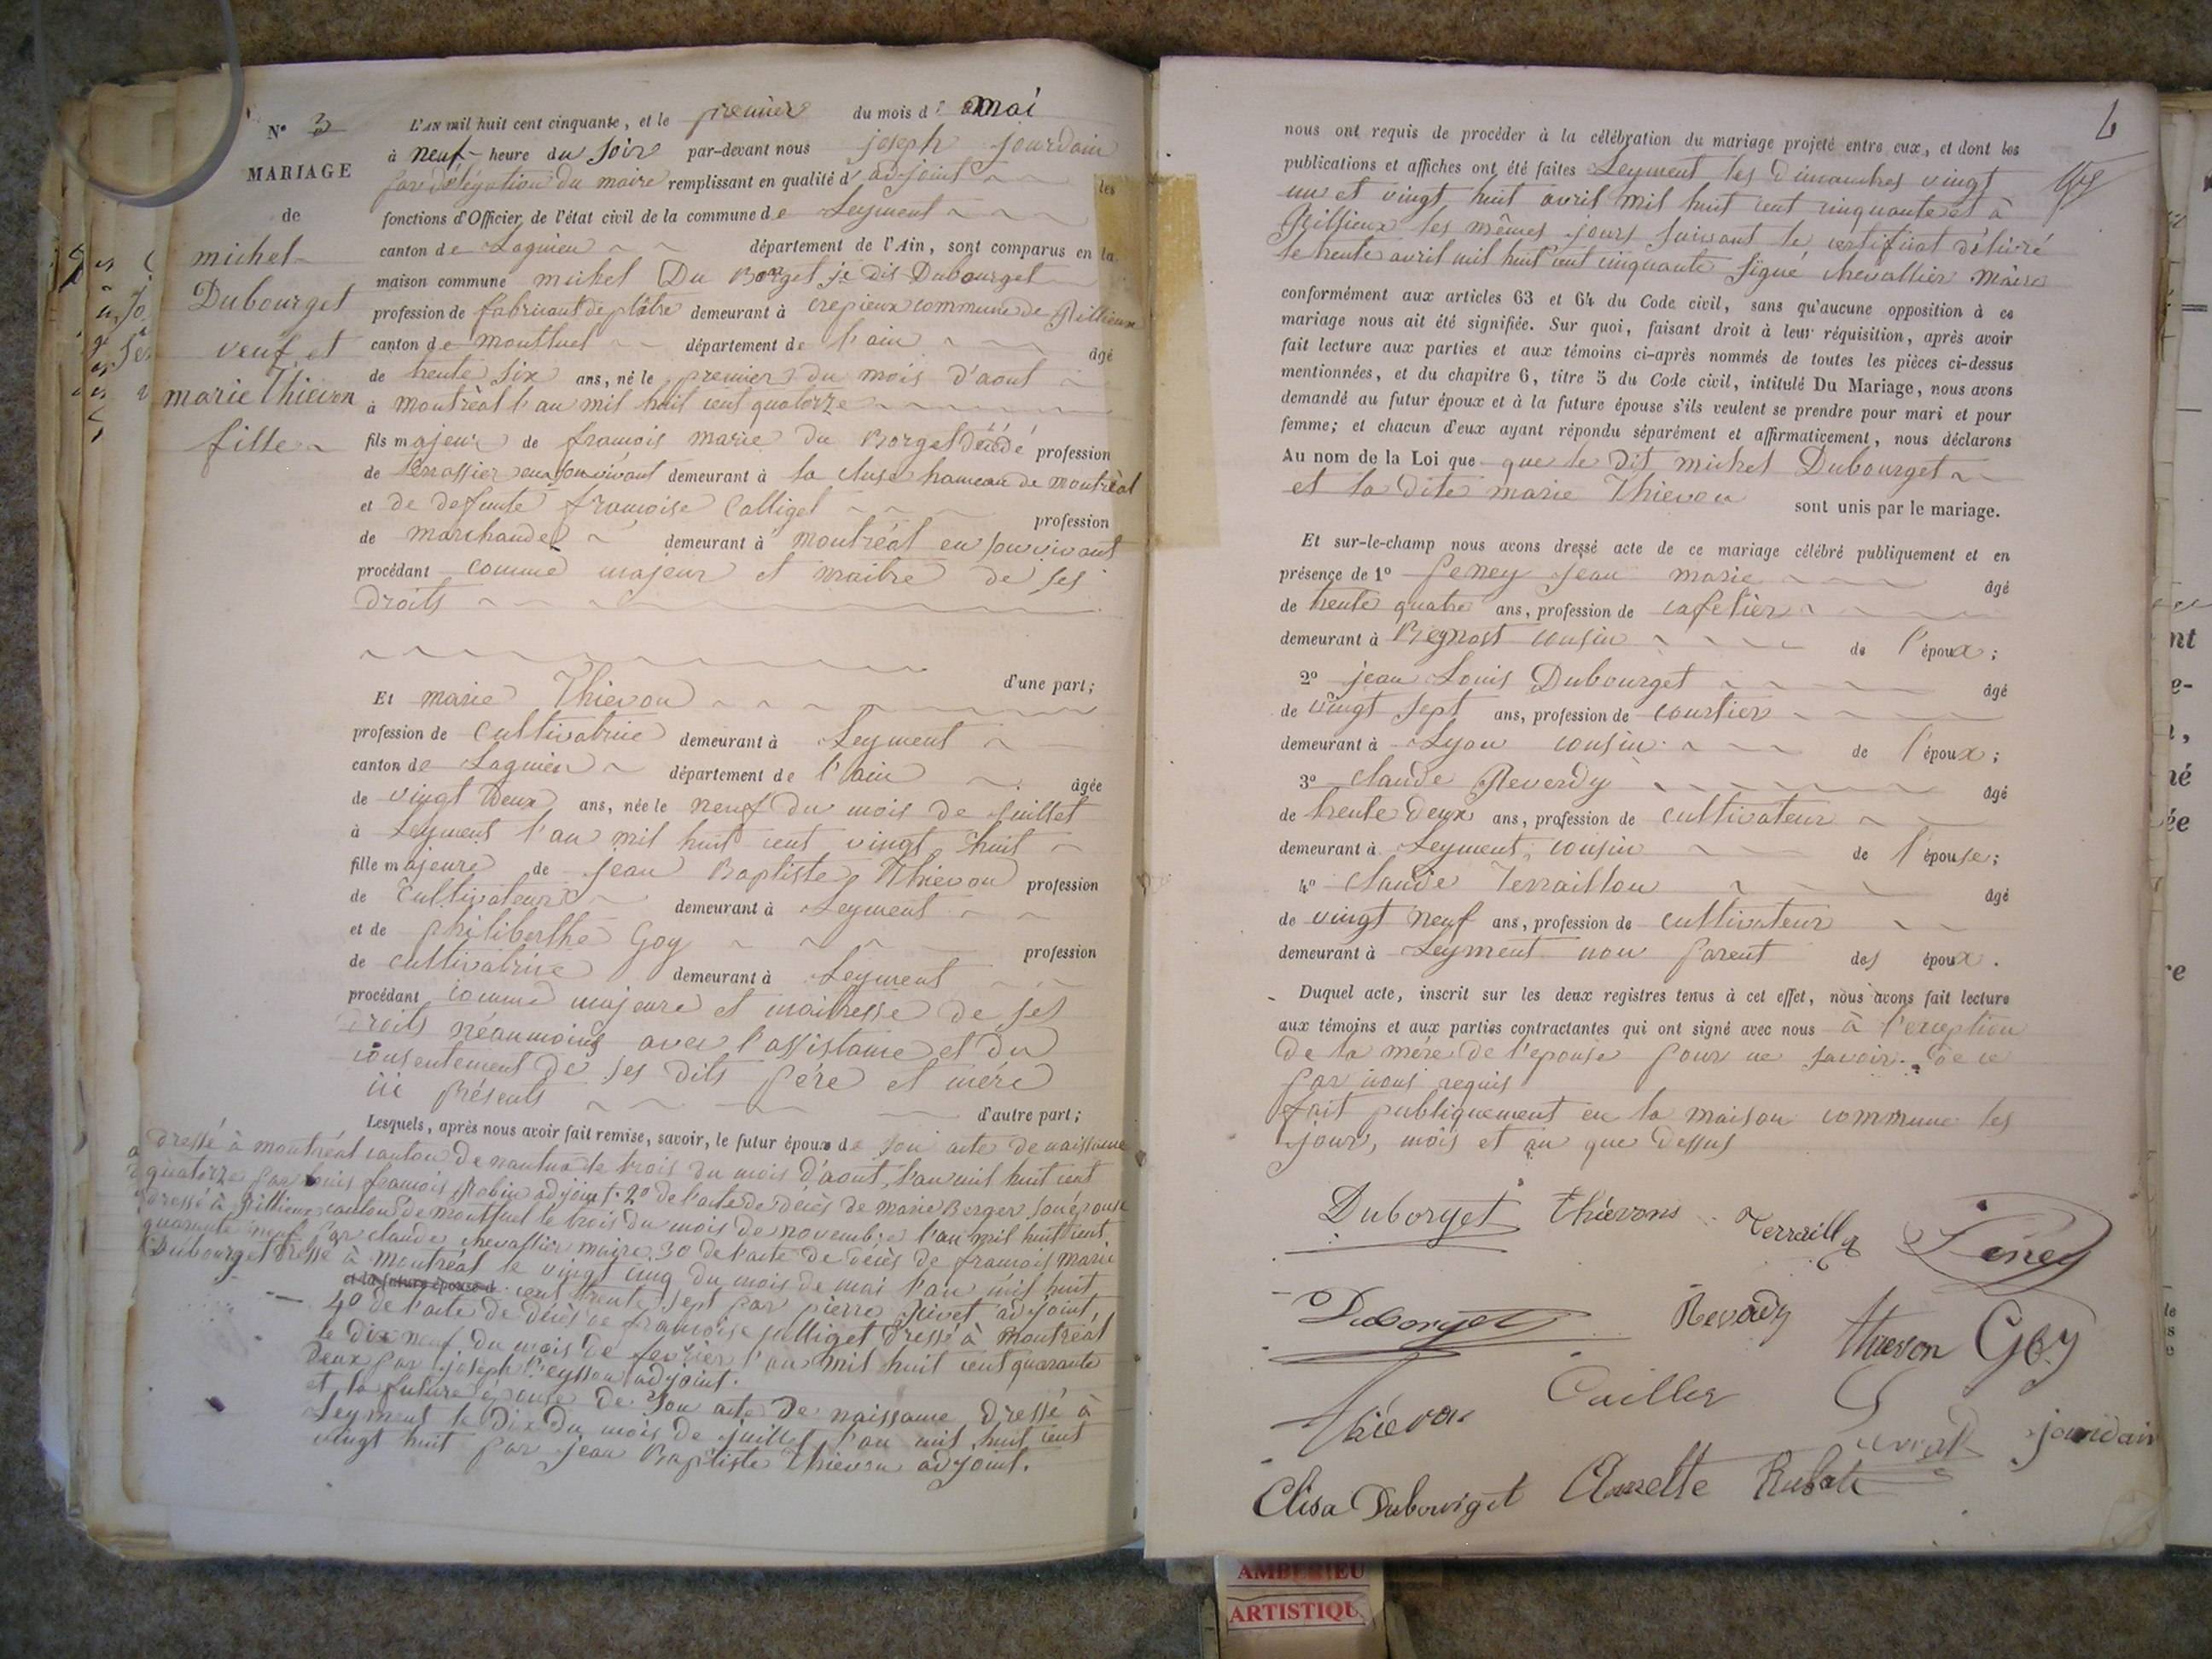 N° 3
MARIAGE
de
michel
Dubourget
veuf et
marie Thievon
fille
L'AN mil huit cent cinquante, et le premier du mois de mai
à neuf heure du soir par-devant nous joseph jourdain
par délégation du maire remplissant en qualité d'adjoint les
fonctions d'Officier de l'état civil de la commune de Leyment
canton de Lagnieu département de l'Ain, sont comparus en la
maison commune michel Du Borget je dis Dubourget
profession de fabricant de plâtre demeurant à crepieux commune de Rillieux
canton de montluel département de l'ain âgé
de trente six ans, né le premier du mois d'aout
à montréal l'an mil huit cent quatorze
fils majeur de francois marie du Borget décédé profession
de terrassier en son vivant demeurant à la cluse hameau de montréal
et de defunte françoise Calliget profession
de marchande demeurant à montréal en son vivant
procédant comme majeur et maitre de ses
droits
d'une part;
Et marie Thievon
profession de cultivatrice demeurant à Leyment
canton de Lagnieu département de l'ain âgée
de vingt deux ans, née le neuf du mois de juillet
à Leyment l'an mil huit cent vingt huit
fille majeure de jean Baptiste Thievon profession
de cultivateur demeurant à Leyment
et de philiberthe Goy profession
de cultivatrice demeurant à Leyment
procédant comme majeure et maitresse de ses
droits néanmoins avec l'assistance et du
consentement de ses dits père et mère
ici présents
d'autre part;
Lesquels, après nous avoir fait remise, savoir, le futur époux de son acte de naissance
dressé à montréal canton de nantua le trois du mois d'aout, l'an mil huit cent
quatorze par louis francois Robin adjoint. 2° de l'acte de décès de marie Berger son épouse
dressé à Rillieux canton de montluel le trois du mois de novembre l'an mil huit cent
quarante neuf par claude chevallier maire. 3° de l'acte de décès de francois marie
Dubourget dressé à montréal le vingt cinq du mois de mai l'an mil huit
et la future épouse d cent trente sept par pierre Rivet adjoint,
4° de l'acte de décès de françoise Calliget dressé à montréal
le dix neuf du mois de fevrier l'an mil huit cent quarante
deux par joseph adjoint.
et la future épouse de son acte de naissance dressé à
Leyment le dix du mois de juillet l'an mil huit cent
vingt huit par jean Baptiste Thievon adjoint.
6
nous ont requis de procéder à la célébration du mariage projeté entre eux, et dont les
publications et affiches ont été faites Leyment les dimanches vingt
un et vingt huit avril mil huit cent cinquante et à
Rillieux les mêmes jours suivant le certificat délivré
le trente avril mil huit cent cinquante signé chevallier maire
conformément aux articles 63 et 64 du Code civil, sans qu'aucune opposition à ce
mariage nous ait été signifiée. Sur quoi, faisant droit à leur réquisition, après avoir
fait lecture aux parties et aux témoins ci-après nommés de toutes les pièces ci-dessus
mentionnées, et du chapitre 6, titre 5 du Code civil, intitulé Du Mariage, nous avons
demandé au futur époux et à la future épouse s'ils veulent se prendre pour mari et pour
femme; et chacun d'eux ayant répondu séparément et affirmativement, nous déclarons
Au nom de la Loi que que le dit michel Dubourget
et la dite marie Thievon sont unis par le mariage.
Et sur-le-champ nous avons dressé acte de ce mariage célébré publiquement et en
présence de 1° peney jean marie âgé
de trente quatre ans, profession de cafetier
demeurant à Beynost cousin de l'époux;
2° jean Louis Dubourget âgé
de vingt sept ans, profession de courtier
demeurant à Lyon cousin de l'époux;
3° claude Reverdy âgé
de trente deux ans, profession de cultivateur
demeurant à Leyment, cousin de l'épouse;
4° claude Terraillon âgé
de vingt neuf ans, profession de cultivateur
demeurant à Leyment non parent des époux.
Duquel acte, inscrit sur les deux registres tenus à cet effet, nous avons fait lecture
aux témoins et aux parties contractantes qui ont signé avec nous à l'exception
de la mère de l'epouse pour ne savoir. de ce
par nous requis
fait publiquement en la maison commune les
jour, mois et an que dessus
Duborget Thiévons Peney
Duborget Thievon Goy
Thiévon Cuiller jourdain
Elisa Dubourget Annette
AMBERIEU
ARTISTIQU